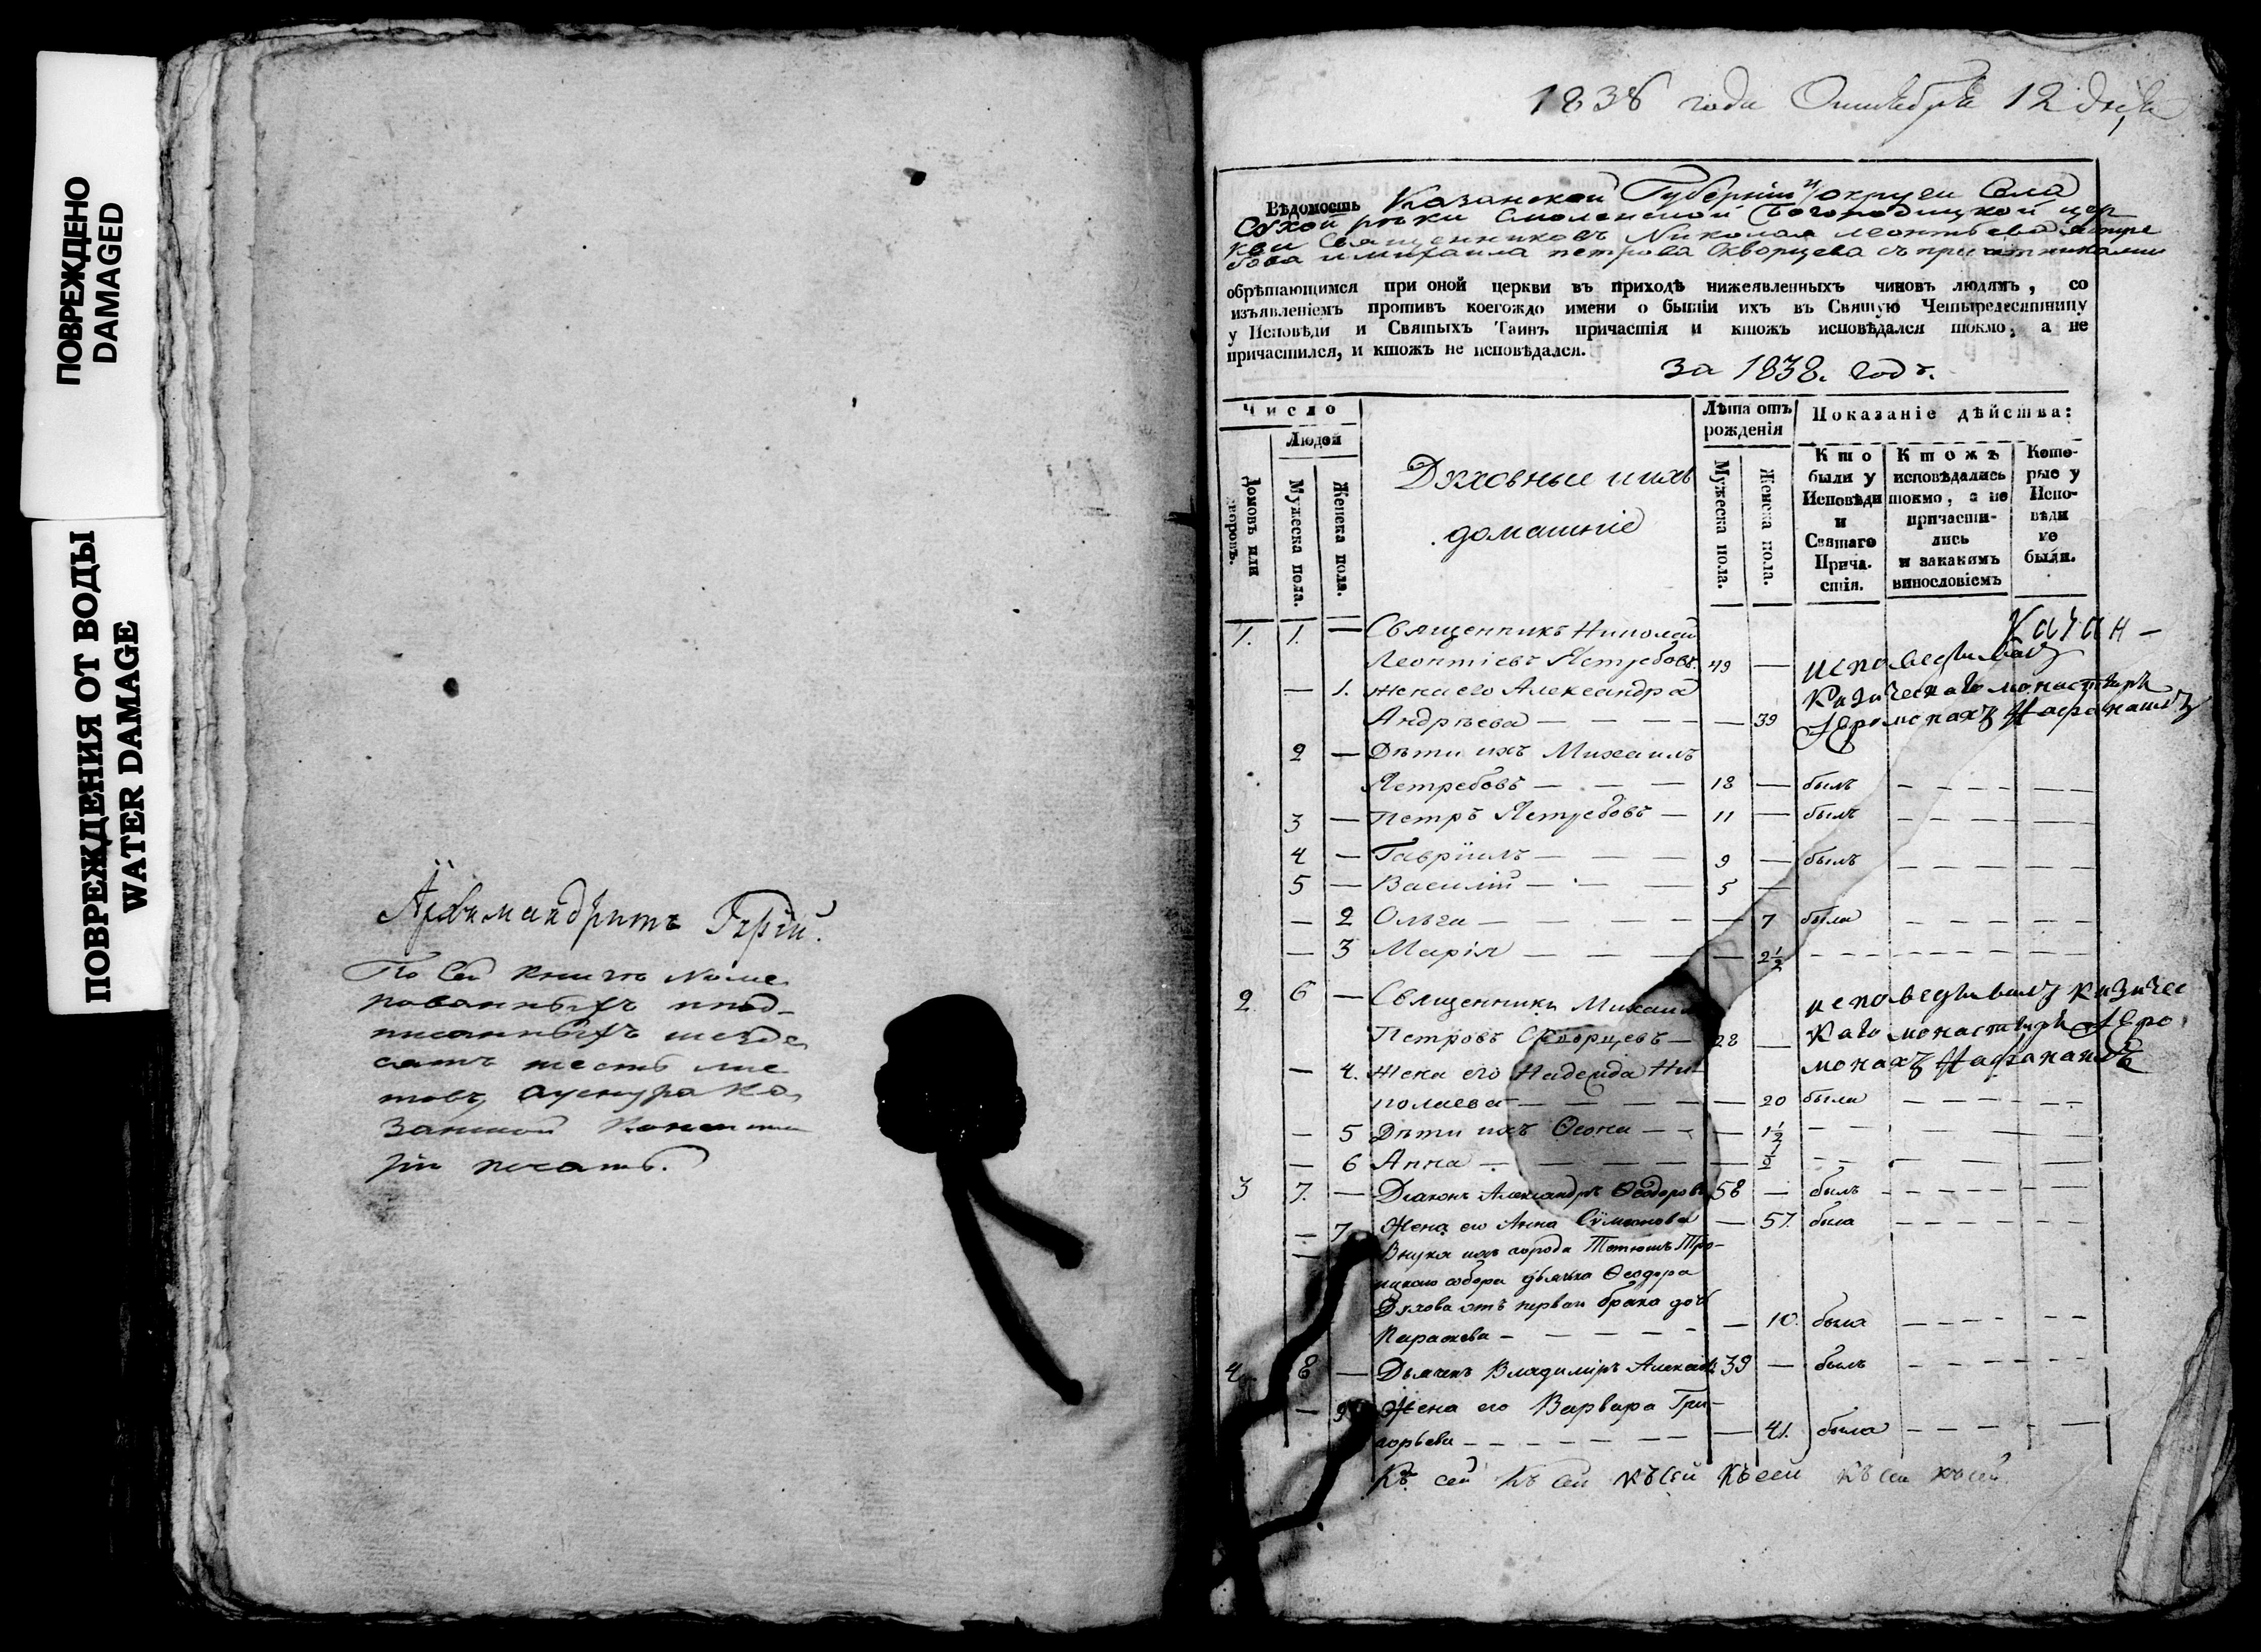 ПОВРЕЖДЕНО
DAMAGED
ПОВРЕЖДЕНИЯ ОТ ВОДЫ
WATER DAMAGE
Архимандритъ Гурій.
По сей книгѣ номе
рованныхъ и под-
писанныхъ шезде
сятъ шесть лис
товъ, Ка
занской Консисто
ріи печать.
1838 года Октября 12 дня
Вѣдомость Казанской Губерніи и округи Села
Сухой рѣки Смоленской Богородицкой цер
кви Священниковъ Николая Леонтьева Ястре
бова и Михаила Петрова Скворцева съ причетниками
обрѣтающимся при оной церкви въ приходѣ нижеявленныхъ чиновъ людямъ, со
изъявленіемъ противъ коегождо имени о бытіи ихъ въ Святую Четыредесятницу
у Исповѣди и Святыхъ Таинъ причастія и ктожъ исповѣдался токмо, а не
причастился, и ктожъ не исповѣдался.
за 1838. годъ.
Число
Людей
Домовъ или дворовъ.
Мужеска пола.
Женска пола.
Духовные и ихъ
домашніе
Лѣта отъ рожденія
Мужеска пола.
Женска пола.
Показаніе дѣйства:
Кто были у Исповѣди и Святаго Прича-стія.
Ктожъ исповѣдались токмо, а не причасти-лись и закакимъ винословіемъ
Кото-рые у Испо-вѣди не были.
1. 1. — Священникъ Николай
Леонтіевъ Ястребовъ. 49 — исповѣдывалъ Казан-
— 1. Жена его Александра Кизическаго монастыря
Андрѣева — — — — 39 Іеромонахъ Нафанаилъ
2 — Дѣти ихъ Михаилъ
Ястребовъ — — — 18 — былъ — — — —
3 — Петръ Ястребовъ — 11 — былъ — — — —
4 — Гавріилъ — — — 9 — былъ — — — —
5 — Василій — — — 5 —
— 2 Ольга — — — — 7 была — — — —
— 3 Марія — — — — 2½ — — — —
2 6 — Священникъ Михаилъ исповѣдывалъ Кизичес
Петровъ Скворцевъ — 28 — каго монастыря Іеро
— 4. Жена его Надежда Ни монахъ Нафанаилъ
колаева — — — — 20 была — — — —
— 5 Дѣти ихъ — — — 1½ — — — —
— 6 Анна — — — — ½ — — — —
3 7. — Діаконъ Александръ Ѳеодоровъ 58 — былъ — — — —
— 7. Жена его Анна Сумеонова — 57. была — — — —
— Внука ихъ города Тетюшъ Тро-
ицкаго собора дьячка Ѳеодора
Духова отъ перваго брака дочь
Параскева — — — — — 10. была — — — —
4. 8 — Дьячекъ Владиміръ Алексѣевъ 39 — былъ — — — —
— 9 Жена его Варвара Гри-
горьева — — — — — 41. была — — — —
Къ сей Къ сей Къ сей Къ сей Къ сей Къ сей